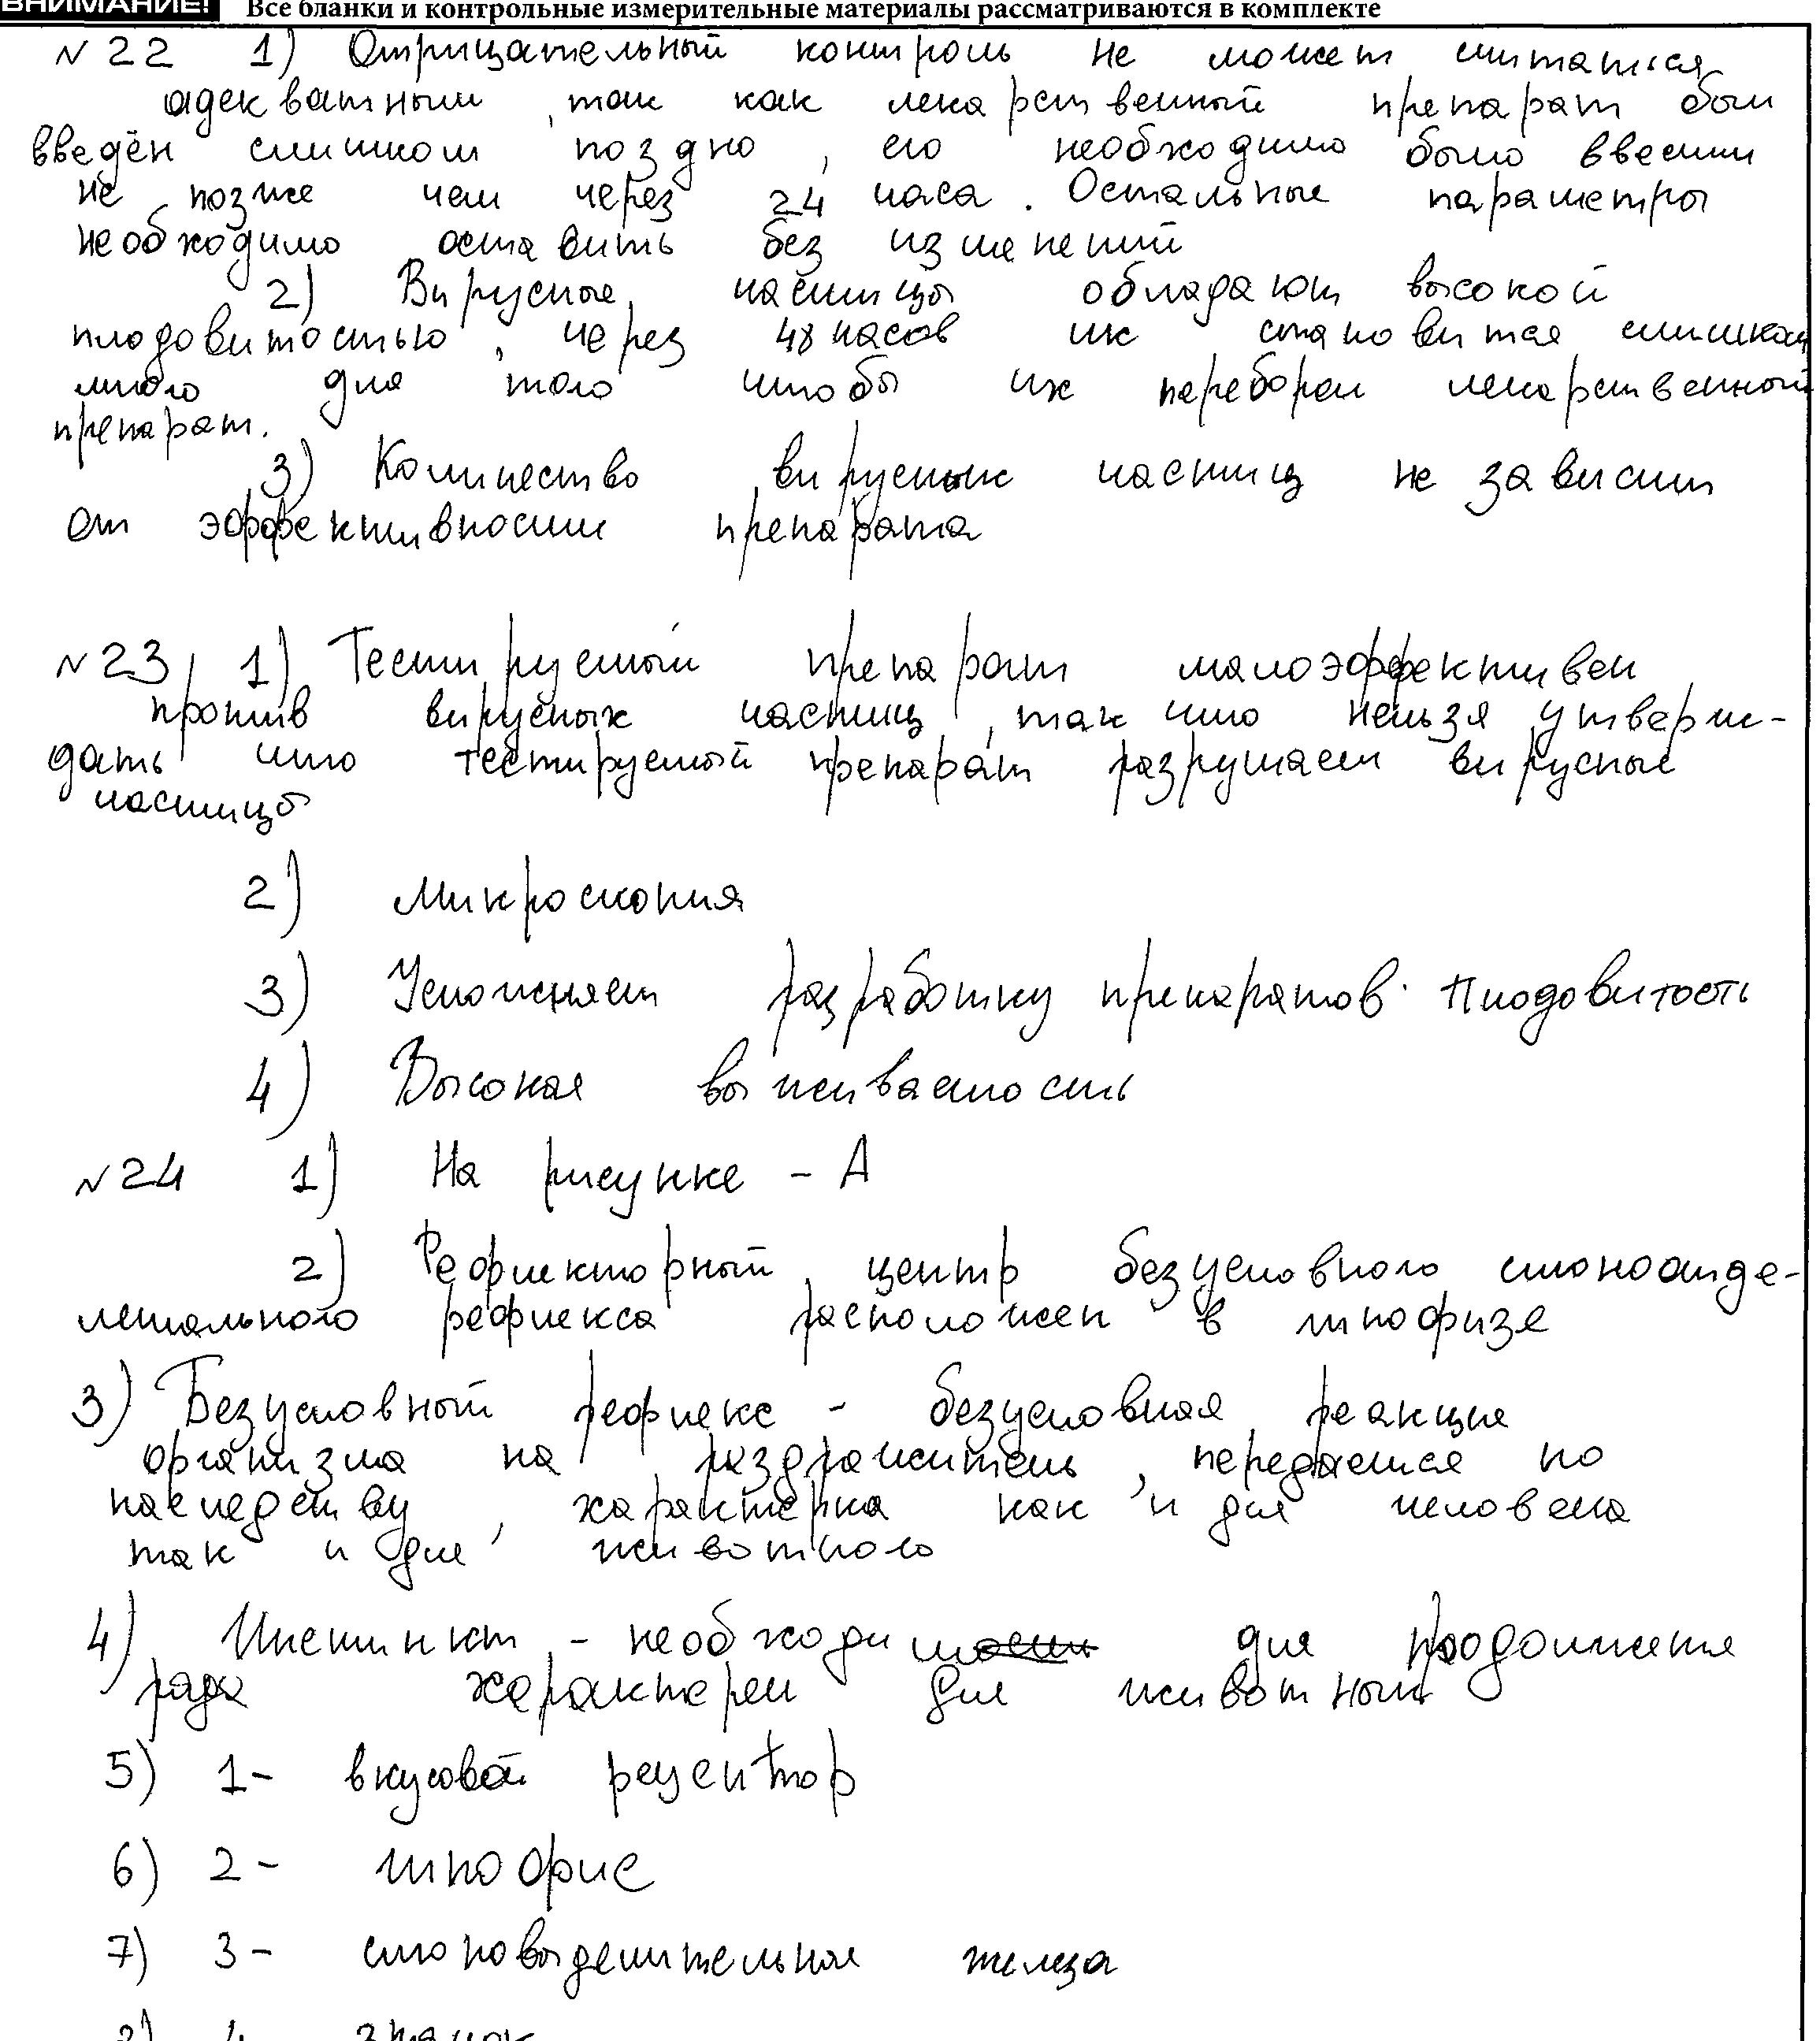 ВНИМАНИЕ! Все бланки и контрольные измерительные материалы рассматриваются в комплекте
№22 1) Отрицательный контроль не может считаться
адекватным, так как лекарственный препарат был
введён слишком поздно, его необходимо было ввести
не позже чем через 24 часа. Остальные параметры
необходимо оставить без изменений
2) Вирусные частицы обладают высокой
плодовитостью, через 48 часов их становится слишком
много для того чтобы их переборол лекарственный
препарат.
3) Количество вирусных частиц не зависит
от эффективности препарата
№23 1) Тестируемый препарат малоэффективен
против вирусных частиц, так что нельзя утверж-
дать что тестируемый препарат разрушает вирусные
частицы
2) Микроскопия
3) Усложняет разработку препаратов. Плодовитость
4) Высокая выживаемость
№24 1) На рисунке - А
2) Рефлекторный центр безусловного слюноотде-
лительного рефлекса расположен в гипофизе
3) Безусловный рефлекс - безусловная реакция
организма на раздражитель, передается по
наследству, характерна как и для человека
так и для животного
4) Инстинкт - необходим для продолжения
рода характерен для животных
5) 1- вкусовой рецептор
6) 2- гипофис
7) 3- слюновыделительная железа